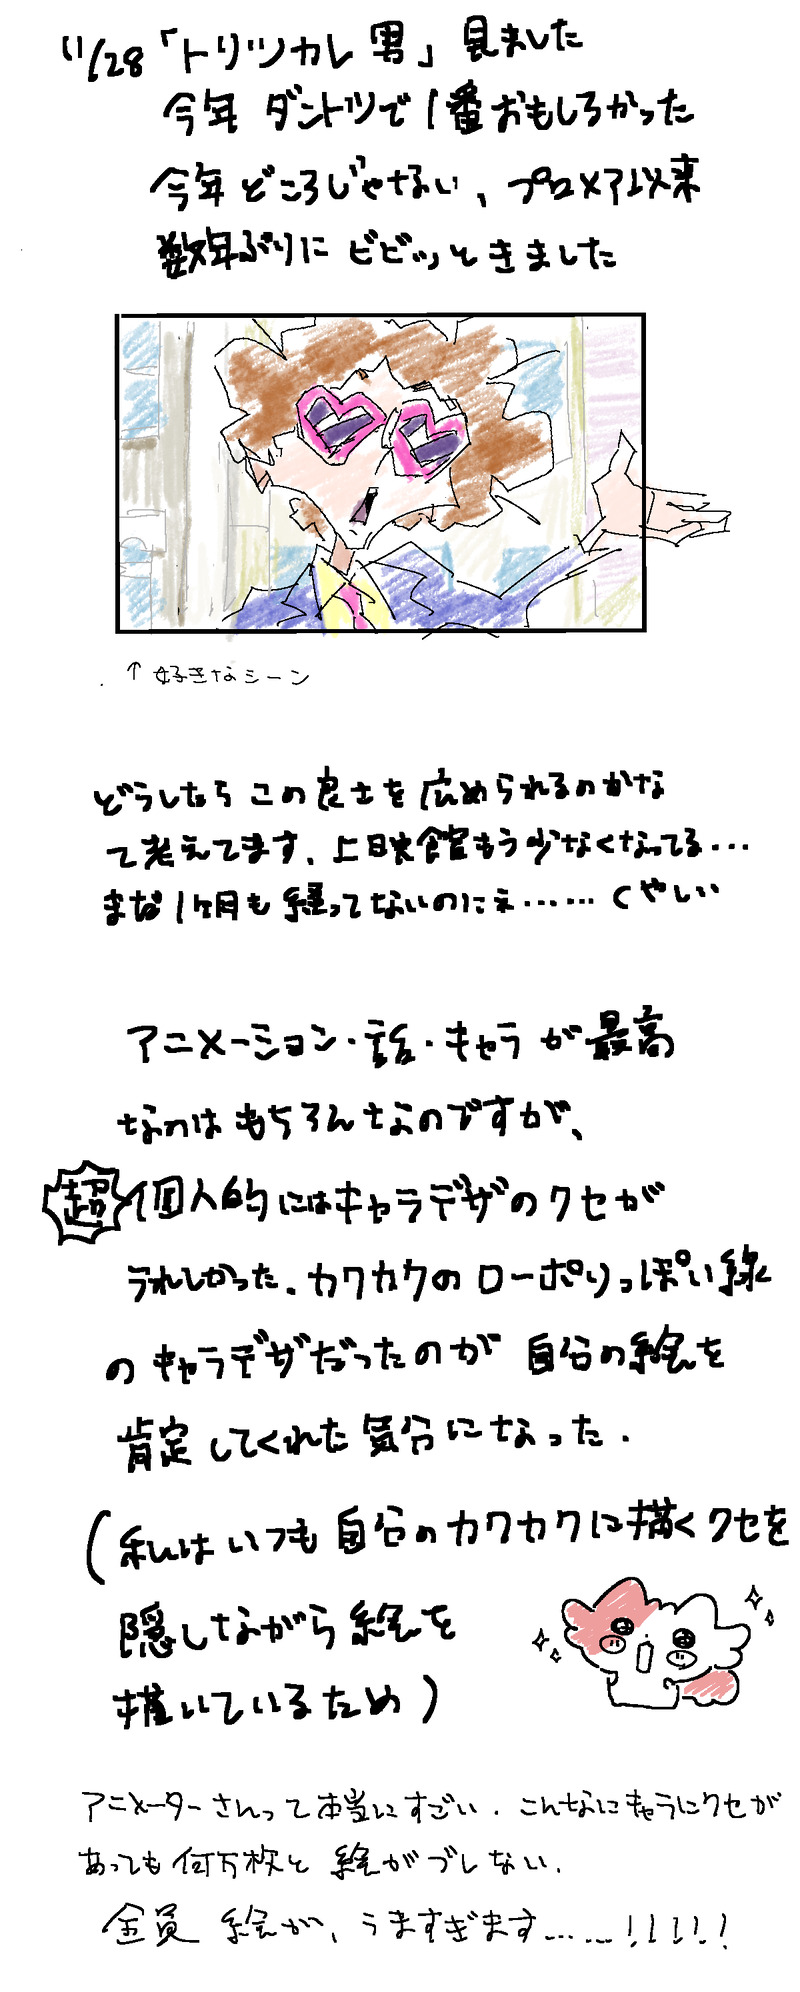 11/28「トリツカレ男」見ました
今年 ダントツで1番おもしろかった
今年どころじゃない、プロメア以来
数年ぶりに ビビッときました
↑好きなシーン
どうしたら この良さを 広められるのかな
て考えてます、上映館もう少なくなってる…
まだ1ヶ月も経ってないのにぇ……くやしい
アニメーション・話・キャラ が最高
なのはもちろんなのですが、
超個人的にはキャラデザのクセが
うれしかった、カクカクのローポリっぽい線
のキャラデザだったのが 自分の絵を
肯定してくれた気分になった.
(私はいつも自分のカクカクに描くクセを
隠しながら絵を
描いているため)
アニメーターさんって本当にすごい. こんなにキャラにクセが
あっても何万枚と 絵がブレない.
全員 絵が、うますぎます……!!!!!